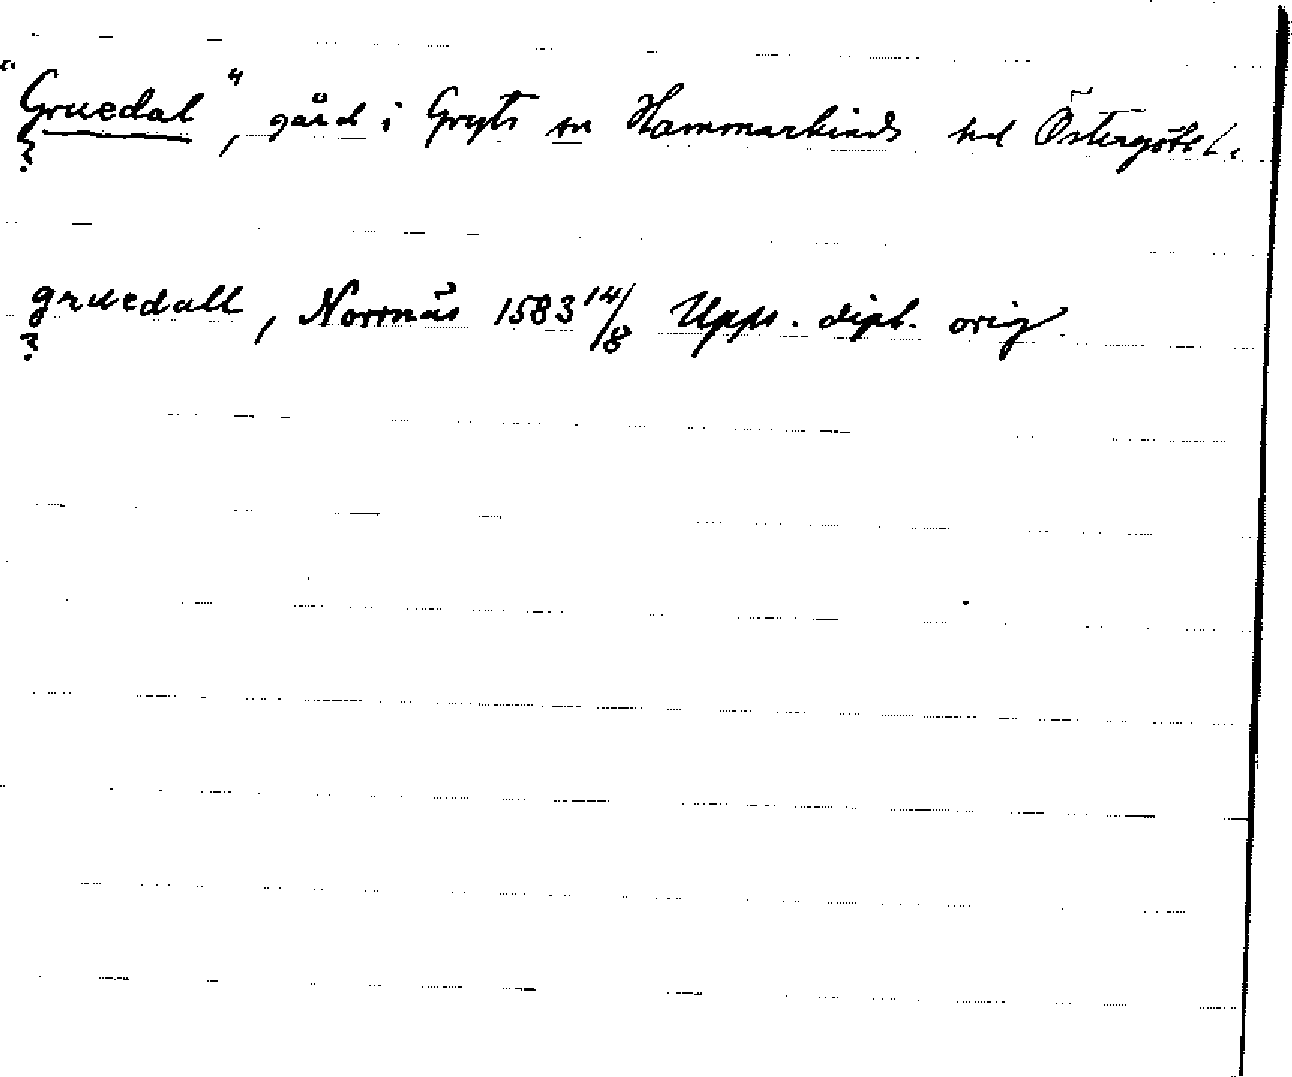 "Gruedal", gård i Gryts sn Hammarkinds hd Östergötl.
?
gruedall, Norrnäs 1583 14/8 Upps. dipl. orig.
?